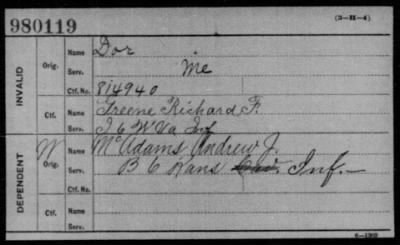 980119
(3-H-4)
INVALID
Orig.
Name Dor
Serv. Me
Ctf. No. 814940
Ctf.
Name Greene Richard F.
Serv. I 6 W Va Inf
DEPENDENT
W
Orig.
Name McAdams, Andrew J.
Serv. B 6 Kans Cav. Inf.
Ctf. No.
Ctf.
Name
Serv.